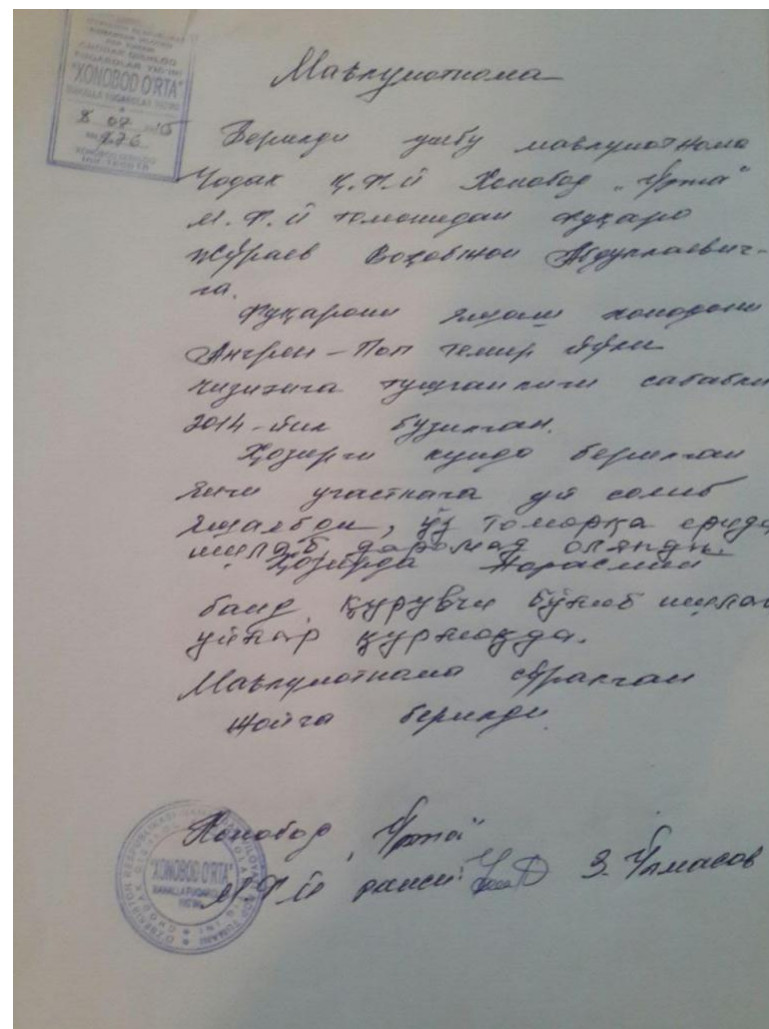 CHODAK QISHLOQ
FUQAROLAR YIG'INI
"XONOBOD O'RTA"
MAHALLA FUQAROLAR YIG'INI
8 07
276
Маълумотнома
Берилди ушбу маълумотнома
Чодак Қ.Ф.Й Хонобод „Ўрта"
М.Ф.Й томонидан фуқаро
Жўраев Воҳобжон Абдуллаевич-
га.
Фуқарони яшаш хонадони
Ангрен-Поп темир йўли
чизиғига тушганлиги сабабли
2014-йил бузилган.
Ҳозирги кунда берилган
янги участкага уй солиб
яшаябди, ўз томорқа ерида
ишлаб даромад олянди.
Ҳозирда Норасмий
банд қурувчи бўлиб ишлаб
уйлар қурмоқда.
Маълумотнома сўралган
жойга берилди.
Хонобод „Ўрта"
М.Ф.Й раиси: З. Ўлмасов
"XONOBOD O'RTA"
MAHALLA FUQAROLAR
YIG'INI